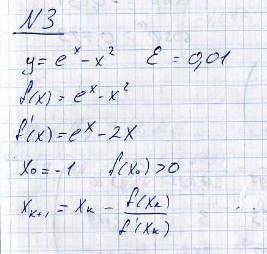 N3
y = e^x - x^2   ε = 0,01
f(x) = e^x - x^2
f'(x) = e^x - 2x
x₀ = -1   f(x₀) > 0
x_{k+1} = x_k - \frac{f(x_k)}{f'(x_k)}